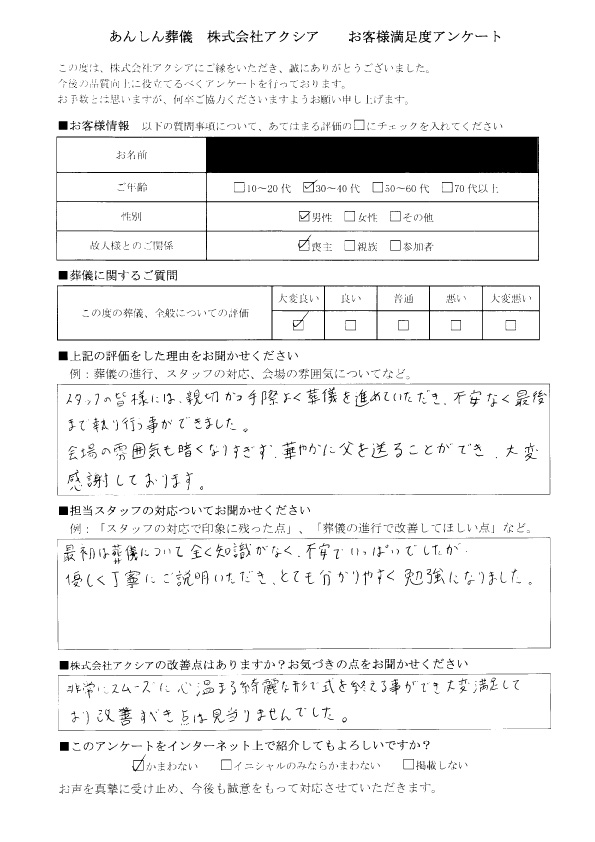 あんしん葬儀　株式会社アクシア　　お客様満足度アンケート
この度は、株式会社アクシアにご縁をいただき、誠にありがとうございました。
今後の品質向上に役立てるべくアンケートを行っております。
お手数とは思いますが、何卒ご協力くださいますようお願い申し上げます。
■お客様情報　以下の質問事項について、あてはまる評価の□にチェックを入れてください
お名前
ご年齢　□10～20代　☑30～40代　□50～60代　□70代以上
性別　☑男性　□女性　□その他
故人様とのご関係　☑喪主　□親族　□参加者
■葬儀に関するご質問
大変良い　良い　普通　悪い　大変悪い
この度の葬儀、全般についての評価　☑　□　□　□　□
■上記の評価をした理由をお聞かせください
例：葬儀の進行、スタッフの対応、会場の雰囲気についてなど。
スタッフの皆様には、親切かつ手際よく葬儀を進めていただき、不安なく最後
まで執り行う事ができました。
会場の雰囲気も暗くなりすぎず、華やかに父を送ることができ、大変
感謝しております。
■担当スタッフの対応ついてお聞かせください
例：「スタッフの対応で印象に残った点」、「葬儀の進行で改善してほしい点」など。
最初は葬儀について全く知識がなく、不安でいっぱいでしたが、
優しく丁寧にご説明いただき、とても分かりやすく勉強になりました。
■株式会社アクシアの改善点はありますか？お気づきの点をお聞かせください
非常にスムーズに心温まる綺麗な形で式を終える事ができ大変満足して
おり改善すべき点は見当りませんでした。
■このアンケートをインターネット上で紹介してもよろしいですか？
☑かまわない　□イニシャルのみならかまわない　□掲載しない
お声を真摯に受け止め、今後も誠意をもって対応させていただきます。